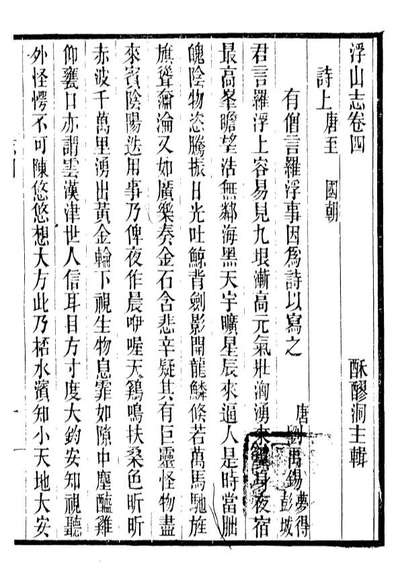 浮山志卷四
酥醪洞主輯
詩上唐至 國朝
有僧言羅浮事因為詩以寫之
唐劉禹錫夢得彭城
君言羅浮上容易見九垠漸高元氣壯洶湧來翼身夜宿
最高峯瞻望浩無鄰海黑天宇曠星辰來逼人是時當朏
魄陰物恣騰振日光吐鯨背劍影開龍鱗倏若萬馬馳旌
旗聳奫淪又如廣樂奏金石含悲辛疑其有巨靈怪物盡
來賓陰陽迭用事乃俾夜作晨咿喔天鷄鳴扶桑色昕昕
赤波千萬里湧出黃金輪下視生物息霏如隙中塵醯雞
仰甕口亦謂雲漢津世人信耳目方寸度大鈞安知視聽
外怪愕不可陳悠悠想大方此乃桮水濱知小天地大安